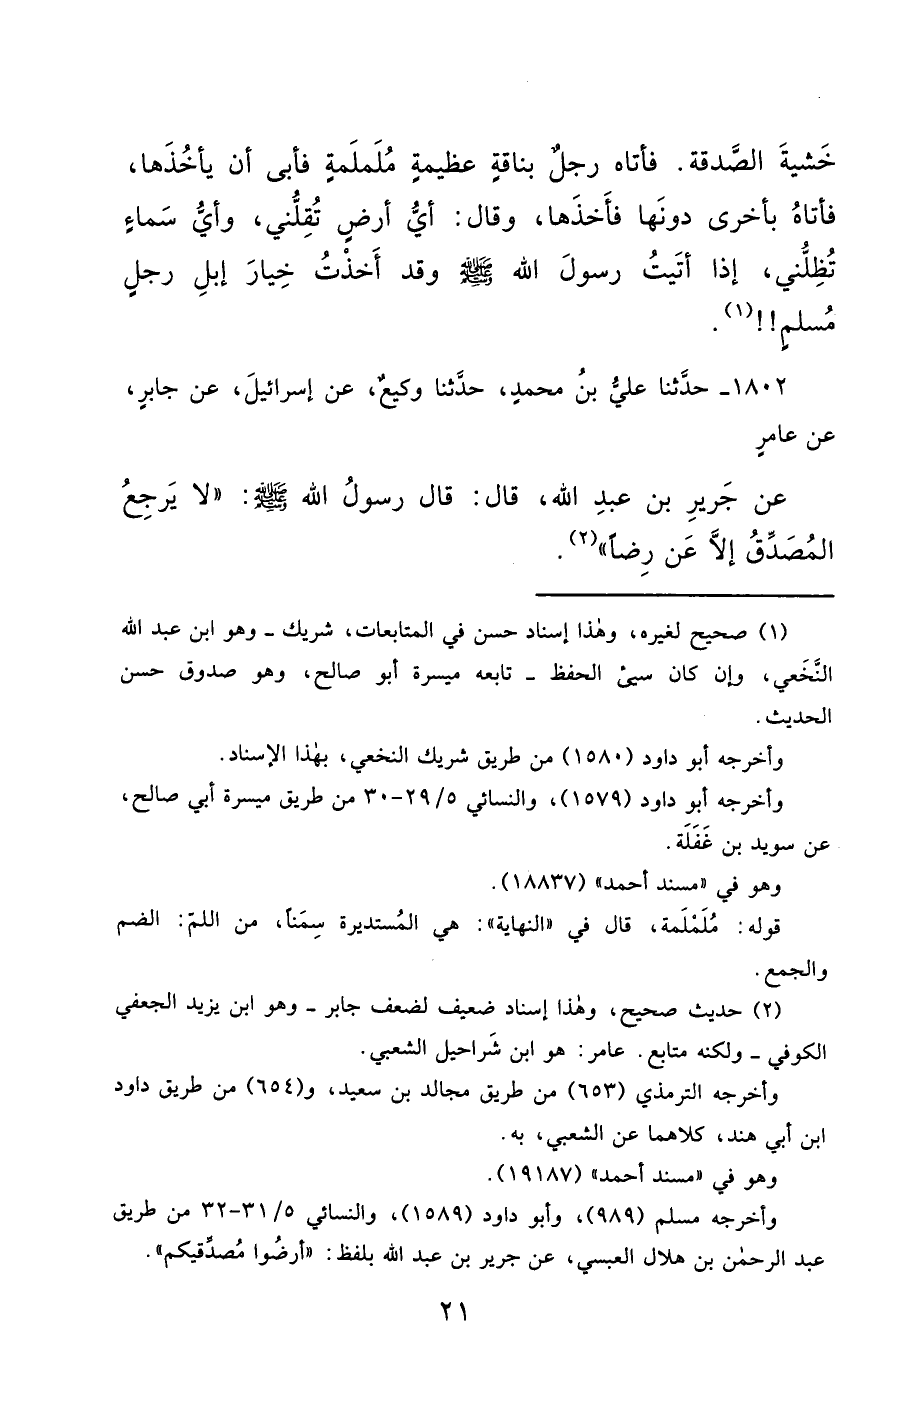 خَشيةَ الصَّدقة. فأتاه رجلٌ بناقةٍ عظيمةٍ مُلَملَمةٍ فأبى أن يأخُذَها،
فأتاهُ بأخرى دونَها فأَخذَها، وقال: أيُّ أرضٍ تُقِلُّني، وأيُّ سَماءٍ
تُظِلُّني، إذا أتَيتُ رسولَ الله ﷺ وقد أَخذْتُ خِيارَ إبلِ رجلٍ
مُسلمٍ!!(١).
١٨٠٢ـ حدَّثنا عليُّ بنُ محمدٍ، حدَّثنا وكيعٌ، عن إسرائيلَ، عن جابرٍ،
عن عامرٍ
عن جَريرِ بن عبدِ الله، قال: قال رسولُ الله ﷺ: «لا يَرجِعُ
المُصَدِّقُ إلاَّ عَن رِضاً»(٢).
(١) صحيح لغيره، وهٰذا إسناد حسن في المتابعات، شريك ـ وهو ابن عبد الله
النَّخَعي، وإن كان سيئ الحفظ ـ تابعه ميسرة أبو صالح، وهو صدوق حسن
الحديث.
وأخرجه أبو داود (١٥٨٠) من طريق شريك النخعي، بهٰذا الإسناد.
وأخرجه أبو داود (١٥٧٩)، والنسائي ٥/ ٢٩-٣٠ من طريق ميسرة أبي صالح،
عن سويد بن غَفَلَة.
وهو في «مسند أحمد» (١٨٨٣٧).
قوله: مُلَمْلَمة، قال في «النهاية»: هي المُستديرة سِمَناً، من اللمّ: الضم
والجمع.
(٢) حديث صحيح، وهٰذا إسناد ضعيف لضعف جابر ـ وهو ابن يزيد الجعفي
الكوفي ـ ولكنه متابع. عامر: هو ابن شَراحيل الشعبي.
وأخرجه الترمذي (٦٥٣) من طريق مجالد بن سعيد، و(٦٥٤) من طريق داود
ابن أبي هند، كلاهما عن الشعبي، به.
وهو في «مسند أحمد» (١٩١٨٧).
وأخرجه مسلم (٩٨٩)، وأبو داود (١٥٨٩)، والنسائي ٥/ ٣١-٣٢ من طريق
عبد الرحمٰن بن هلال العبسي، عن جرير بن عبد الله بلفظ: «أرضُوا مُصدِّقيكم».
٢١